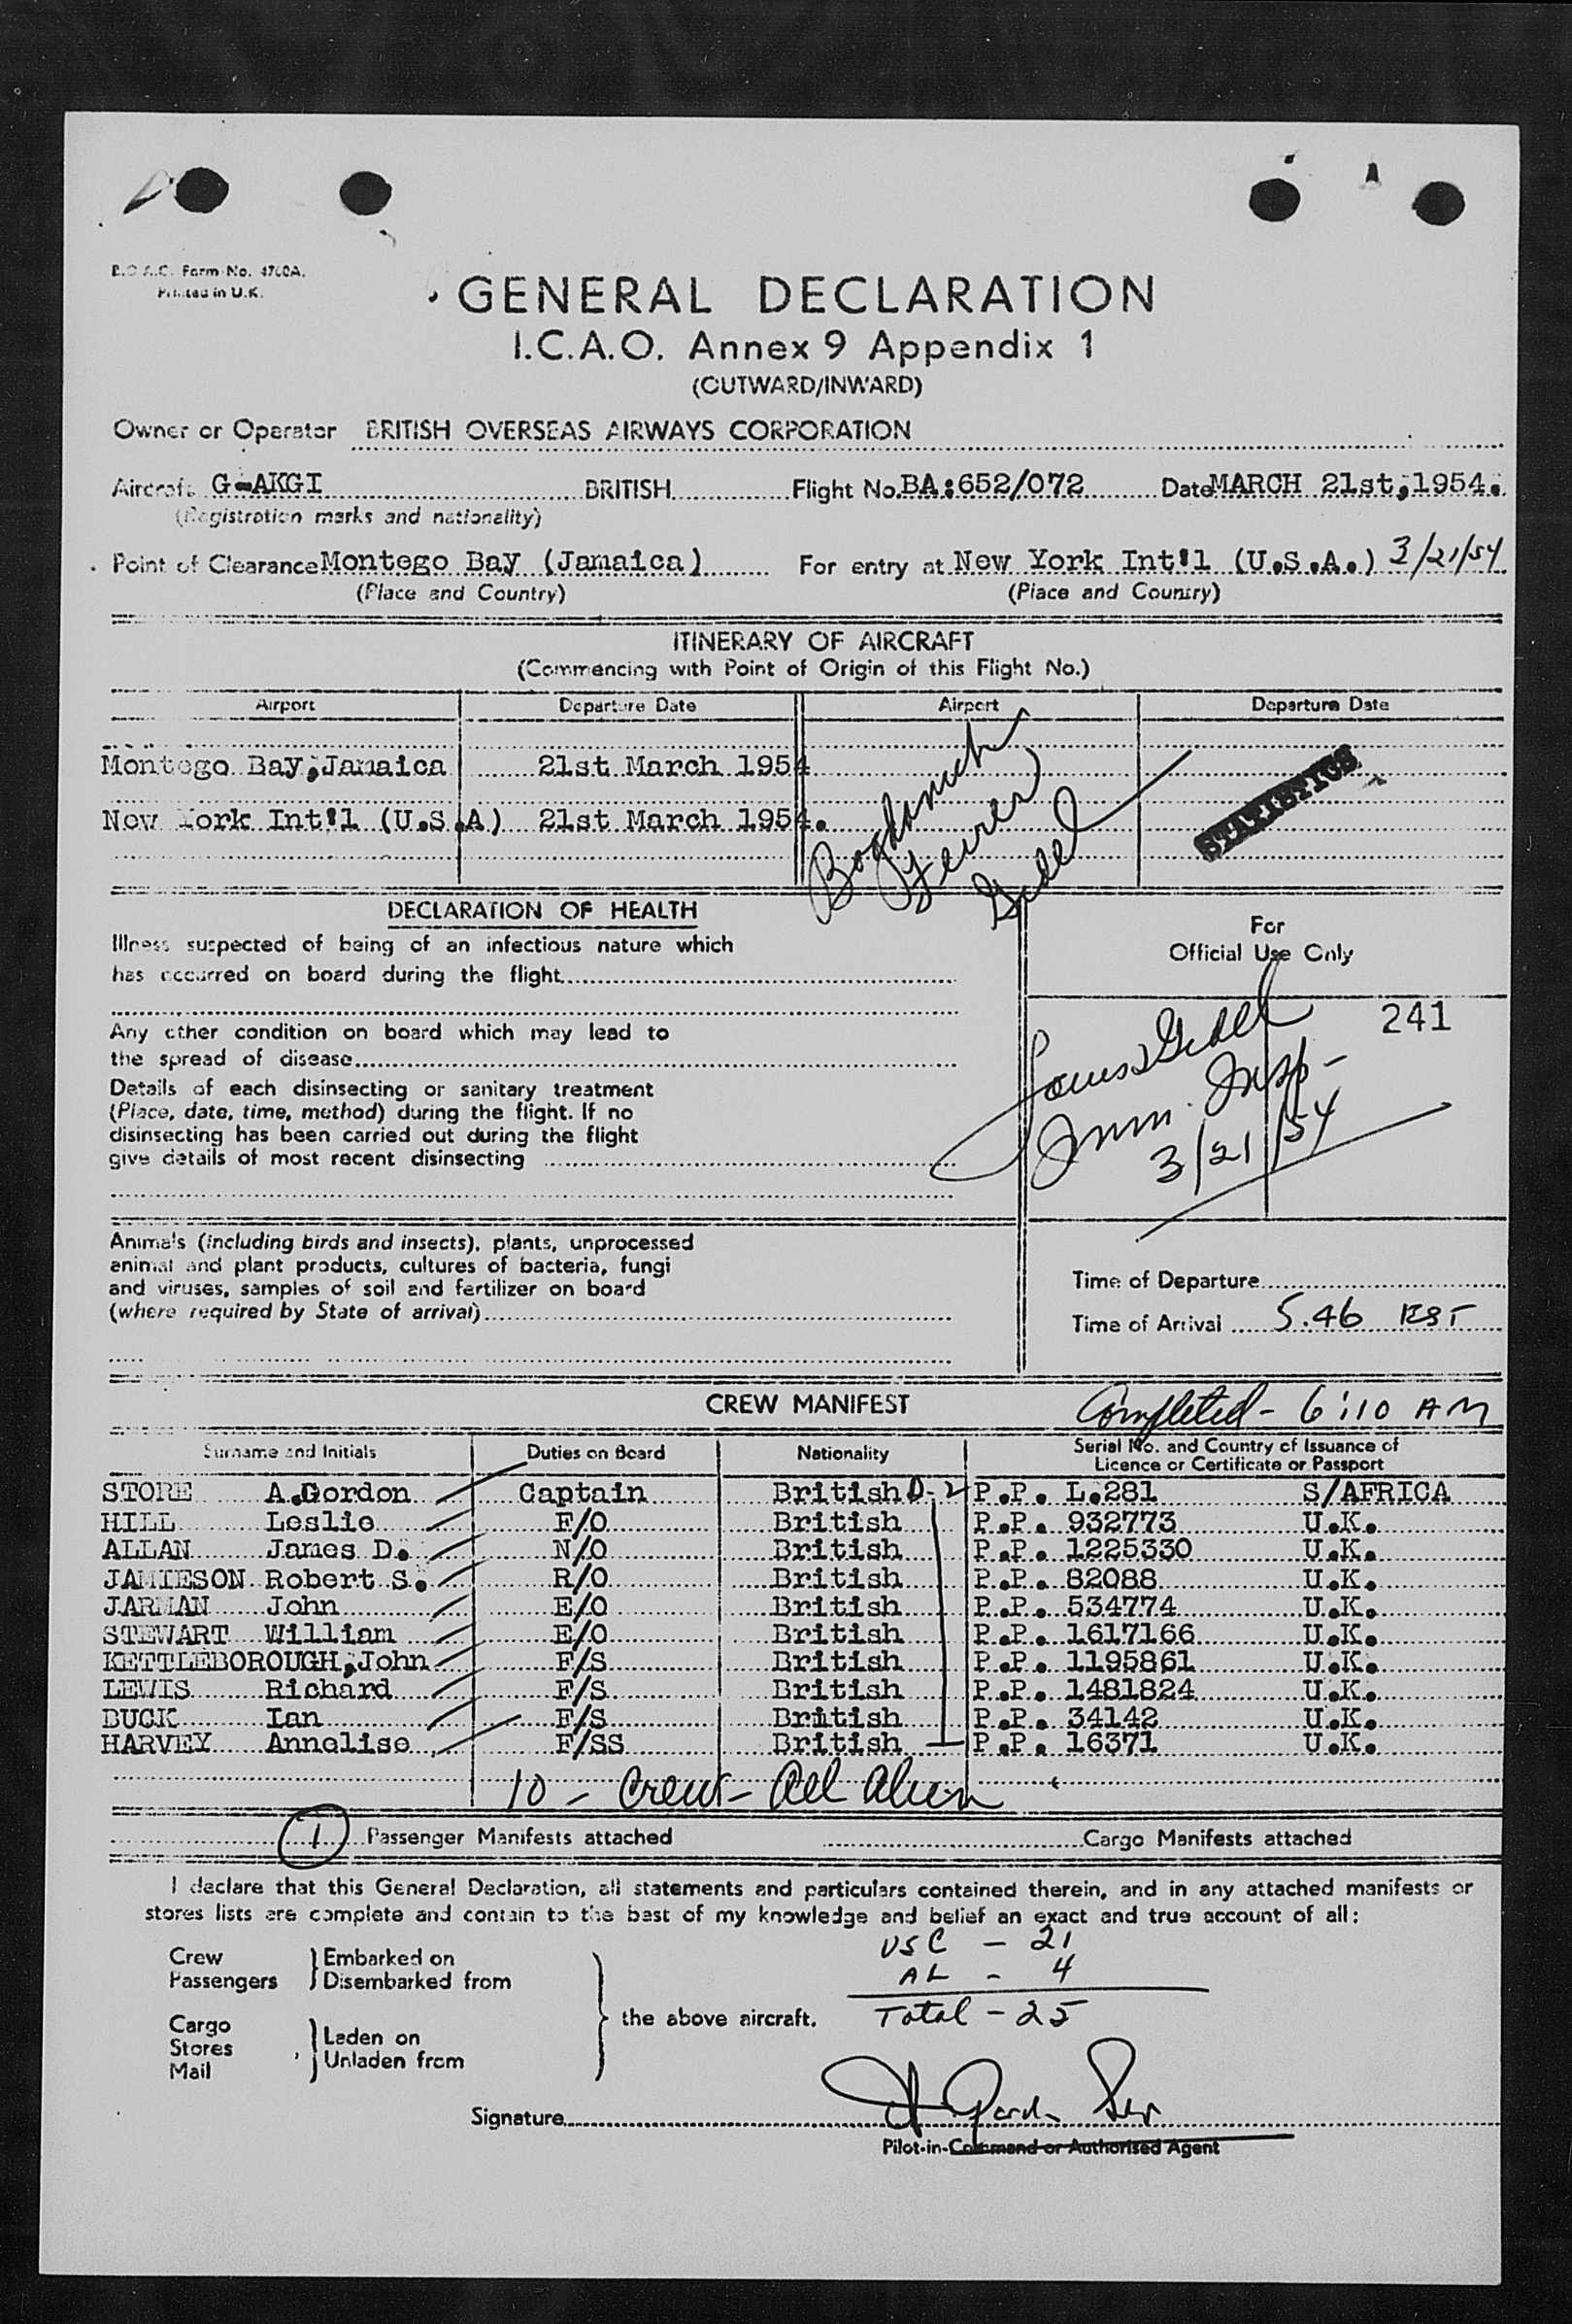 B.O.A.C. Form No. 4760A.
Printed in U.K.
GENERAL DECLARATION
I.C.A.O. Annex 9 Appendix 1
(OUTWARD/INWARD)
Owner or Operator BRITISH OVERSEAS AIRWAYS CORPORATION
Aircraft G-AKGI BRITISH Flight No. BA:652/072 Date MARCH 21st, 1954.
(Registration marks and nationality)
Point of Clearance Montego Bay (Jamaica) For entry at New York Int'l (U.S.A.) 3/21/54
(Place and Country) (Place and Country)
ITINERARY OF AIRCRAFT
(Commencing with Point of Origin of this Flight No.)
Airport Departure Date Airport Departure Date
Montego Bay, Jamaica 21st March 1954
New York Int'l (U.S.A) 21st March 1954.
STATISTICS
DECLARATION OF HEALTH
Illness suspected of being of an infectious nature which
has occurred on board during the flight
Any other condition on board which may lead to
the spread of disease
Details of each disinsecting or sanitary treatment
(Place, date, time, method) during the flight. If no
disinsecting has been carried out during the flight
give details of most recent disinsecting
For
Official Use Only
241
Imm. Insp-
3/21/54
Animals (including birds and insects), plants, unprocessed
animal and plant products, cultures of bacteria, fungi
and viruses, samples of soil and fertilizer on board
(where required by State of arrival)
Time of Departure
Time of Arrival 5.46 EST
CREW MANIFEST Completed - 6:10 AM
Surname and Initials Duties on Board Nationality Serial No. and Country of Issuance of
Licence or Certificate or Passport
STORE A.Gordon Captain British D-2 P.P. L.281 S/AFRICA
HILL Leslie F/O British P.P. 932773 U.K.
ALLAN James D. N/O British P.P. 1225330 U.K.
JAMIESON Robert S. R/O British P.P. 82088 U.K.
JARMAN John E/O British P.P. 534774 U.K.
STEWART William E/O British P.P. 1617166 U.K.
KETTLEBOROUGH, John F/S British P.P. 1195861 U.K.
LEWIS Richard F/S British P.P. 1481824 U.K.
BUCK Ian F/S British P.P. 34142 U.K.
HARVEY Annelise F/SS British P.P. 16371 U.K.
10 - Crew - All Alien
1 Passenger Manifests attached Cargo Manifests attached
I declare that this General Declaration, all statements and particulars contained therein, and in any attached manifests or
stores lists are complete and contain to the best of my knowledge and belief an exact and true account of all:
USC - 21
AL - 4
Total - 25
Crew Embarked on
Passengers Disembarked from
the above aircraft.
Cargo
Stores Laden on
Mail Unladen from
Signature
Pilot-in-Command or Authorised Agent